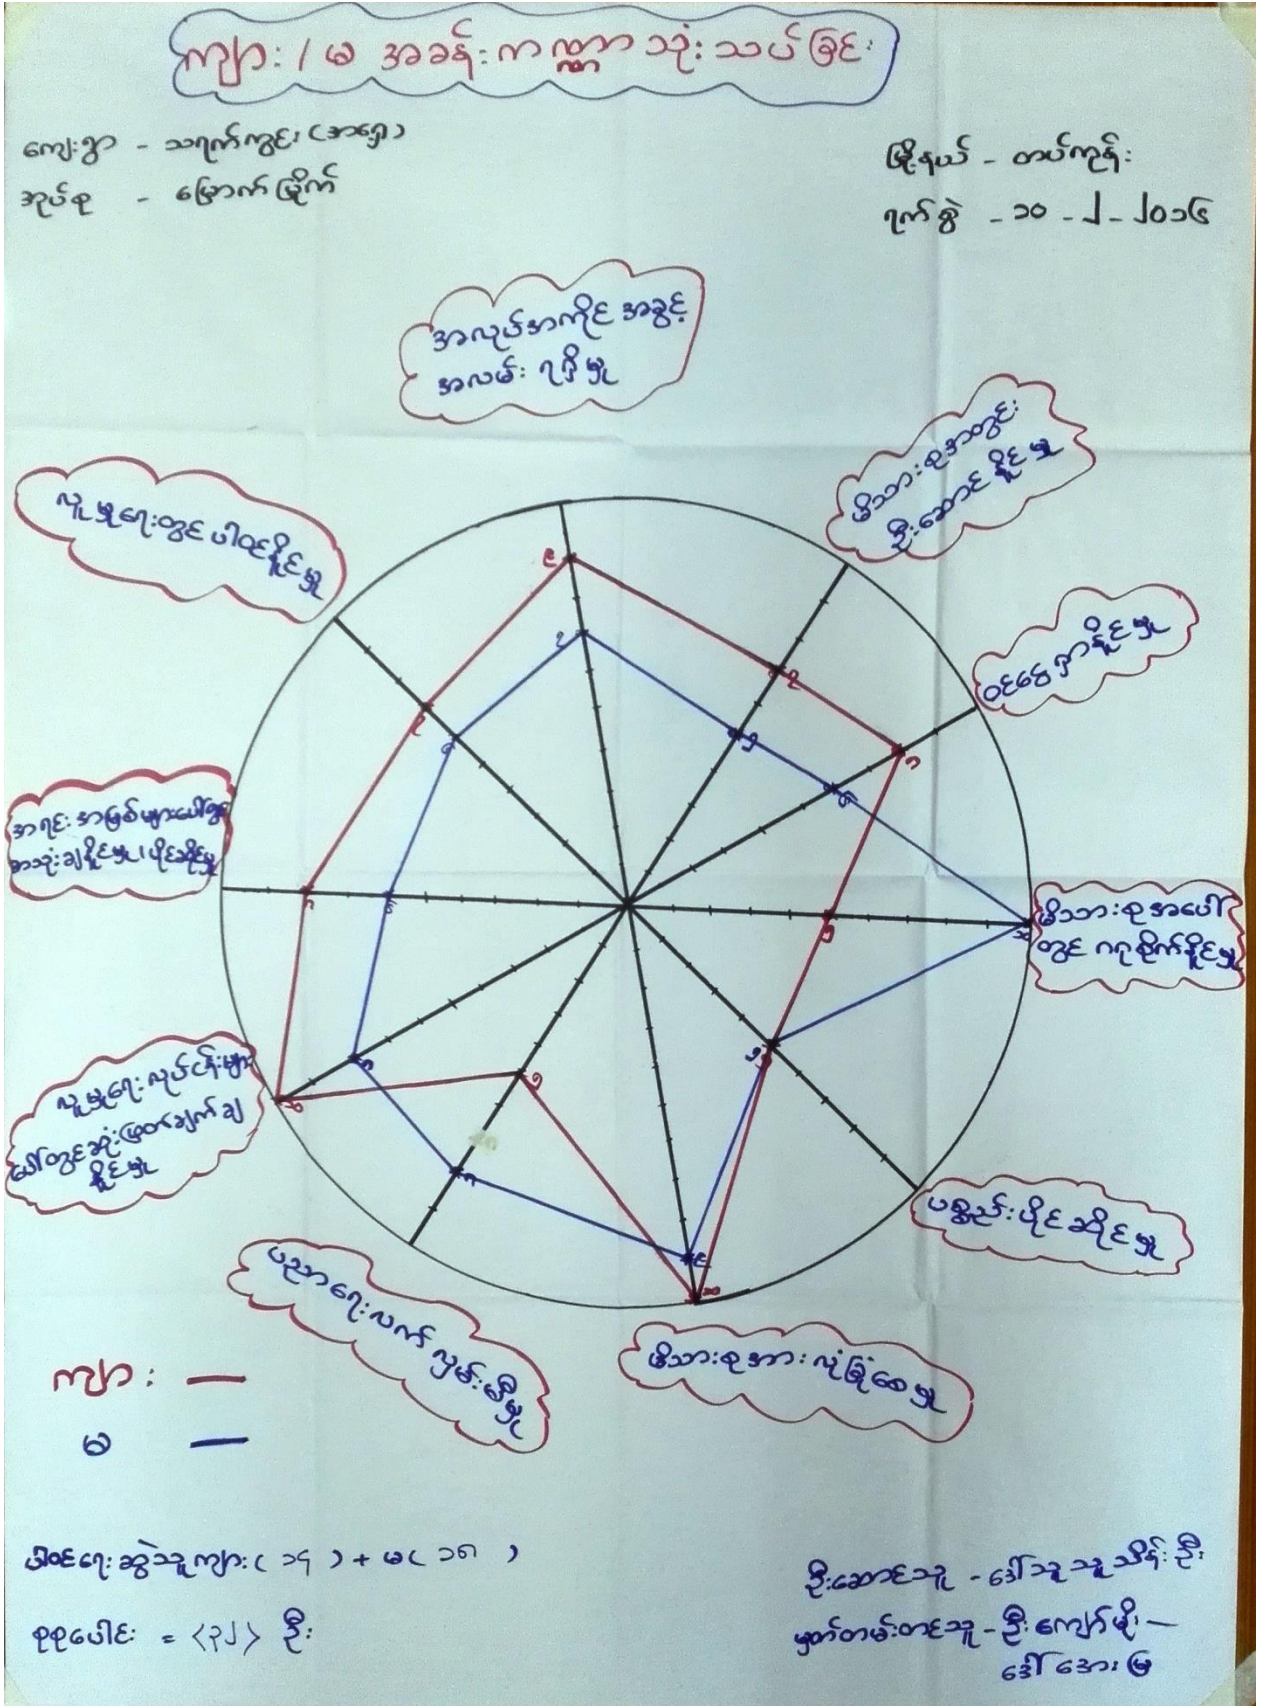 ကျား / မ အခန်းကဏ္ဍာသုံးသပ်ခြင်း
ကျေးရွာ - သရက်ကွင်း (အရှေ့)
အုပ်စု - မြောက်မြိုက်
မြို့နယ် - တပ်ကုန်း
ရက်စွဲ - ၁၀ - ၂ - ၂၀၁၆
အလုပ်အကိုင် အခွင့်
အလမ်း ရရှိမှု
မိသားစုအတွင်း
ဦးဆောင်နိုင်မှု
ဝင်ငွေရှာနိုင်မှု
မိသားစုအပေါ်
တွင် ဂရုစိုက်နိုင်မှု
ပစ္စည်းပိုင်ဆိုင်မှု
မိသားစုအား လုံခြုံစေမှု
ပညာရေးလက်လှမ်းမီမှု
လူမှုရေးလုပ်ငန်းများ
ပေါ်တွင်ဆုံးဖြတ်ချက်ချ
နိုင်မှု
အရင်းအမြစ်များပေါ်တွင်
အသုံးချနိုင်မှု၊ ပိုင်ဆိုင်မှု
လူမှုရေးတွင် ပါဝင်နိုင်မှု
၉
၇
၇
၅
၈
၆
၁၀
၅
၅
၉
၁၀
၅
၈
၈
၁၀
၈
၆
၇
၆
ကျား —
မ —
ပါဝင်ဆွေးနွေးသူ ကျား ( ၁၄ ) + မ ( ၁၈ )
စုစုပေါင်း = <၃၂> ဦး
ဦးဆောင်သူ - ဒေါ်သူသူသိန်းဦး
မှတ်တမ်းတင်သူ - ဦးကျော်မိုး —
ဒေါ်အေးမြ